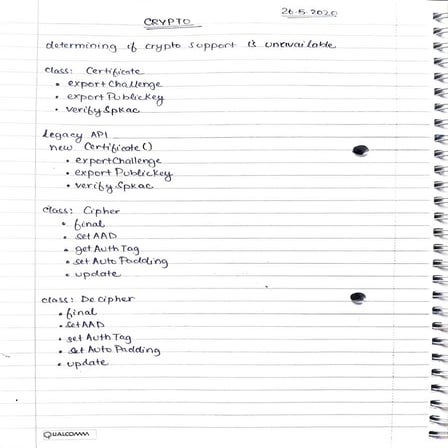 26-5-2020
CRYPTO
determining if crypto support is unavailable
class: Certificate
• exportChallenge
• export PublicKey
• verifySpkac
Legacy API
new Certificate()
• exportChallenge
• export PublicKey
• verifySpkac
class: Cipher
• final
• setAAD
• getAuthTag
• set Auto Padding
• update
class: Decipher
• final
• setAAD
• set AuthTag
• set Auto Padding
• update
QUALCOMM